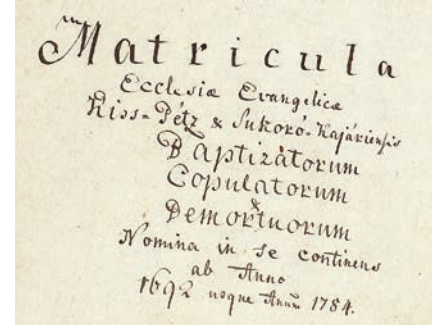 Matricula
Ecclesiæ Evangelicæ
Kiss-Pétz & Sukoró-Kajáriensis
Baptizatorum
Copulatorum
&
Demortuorum
Nomina in se continens
ab Anno
1692 usque Annũ 1784.